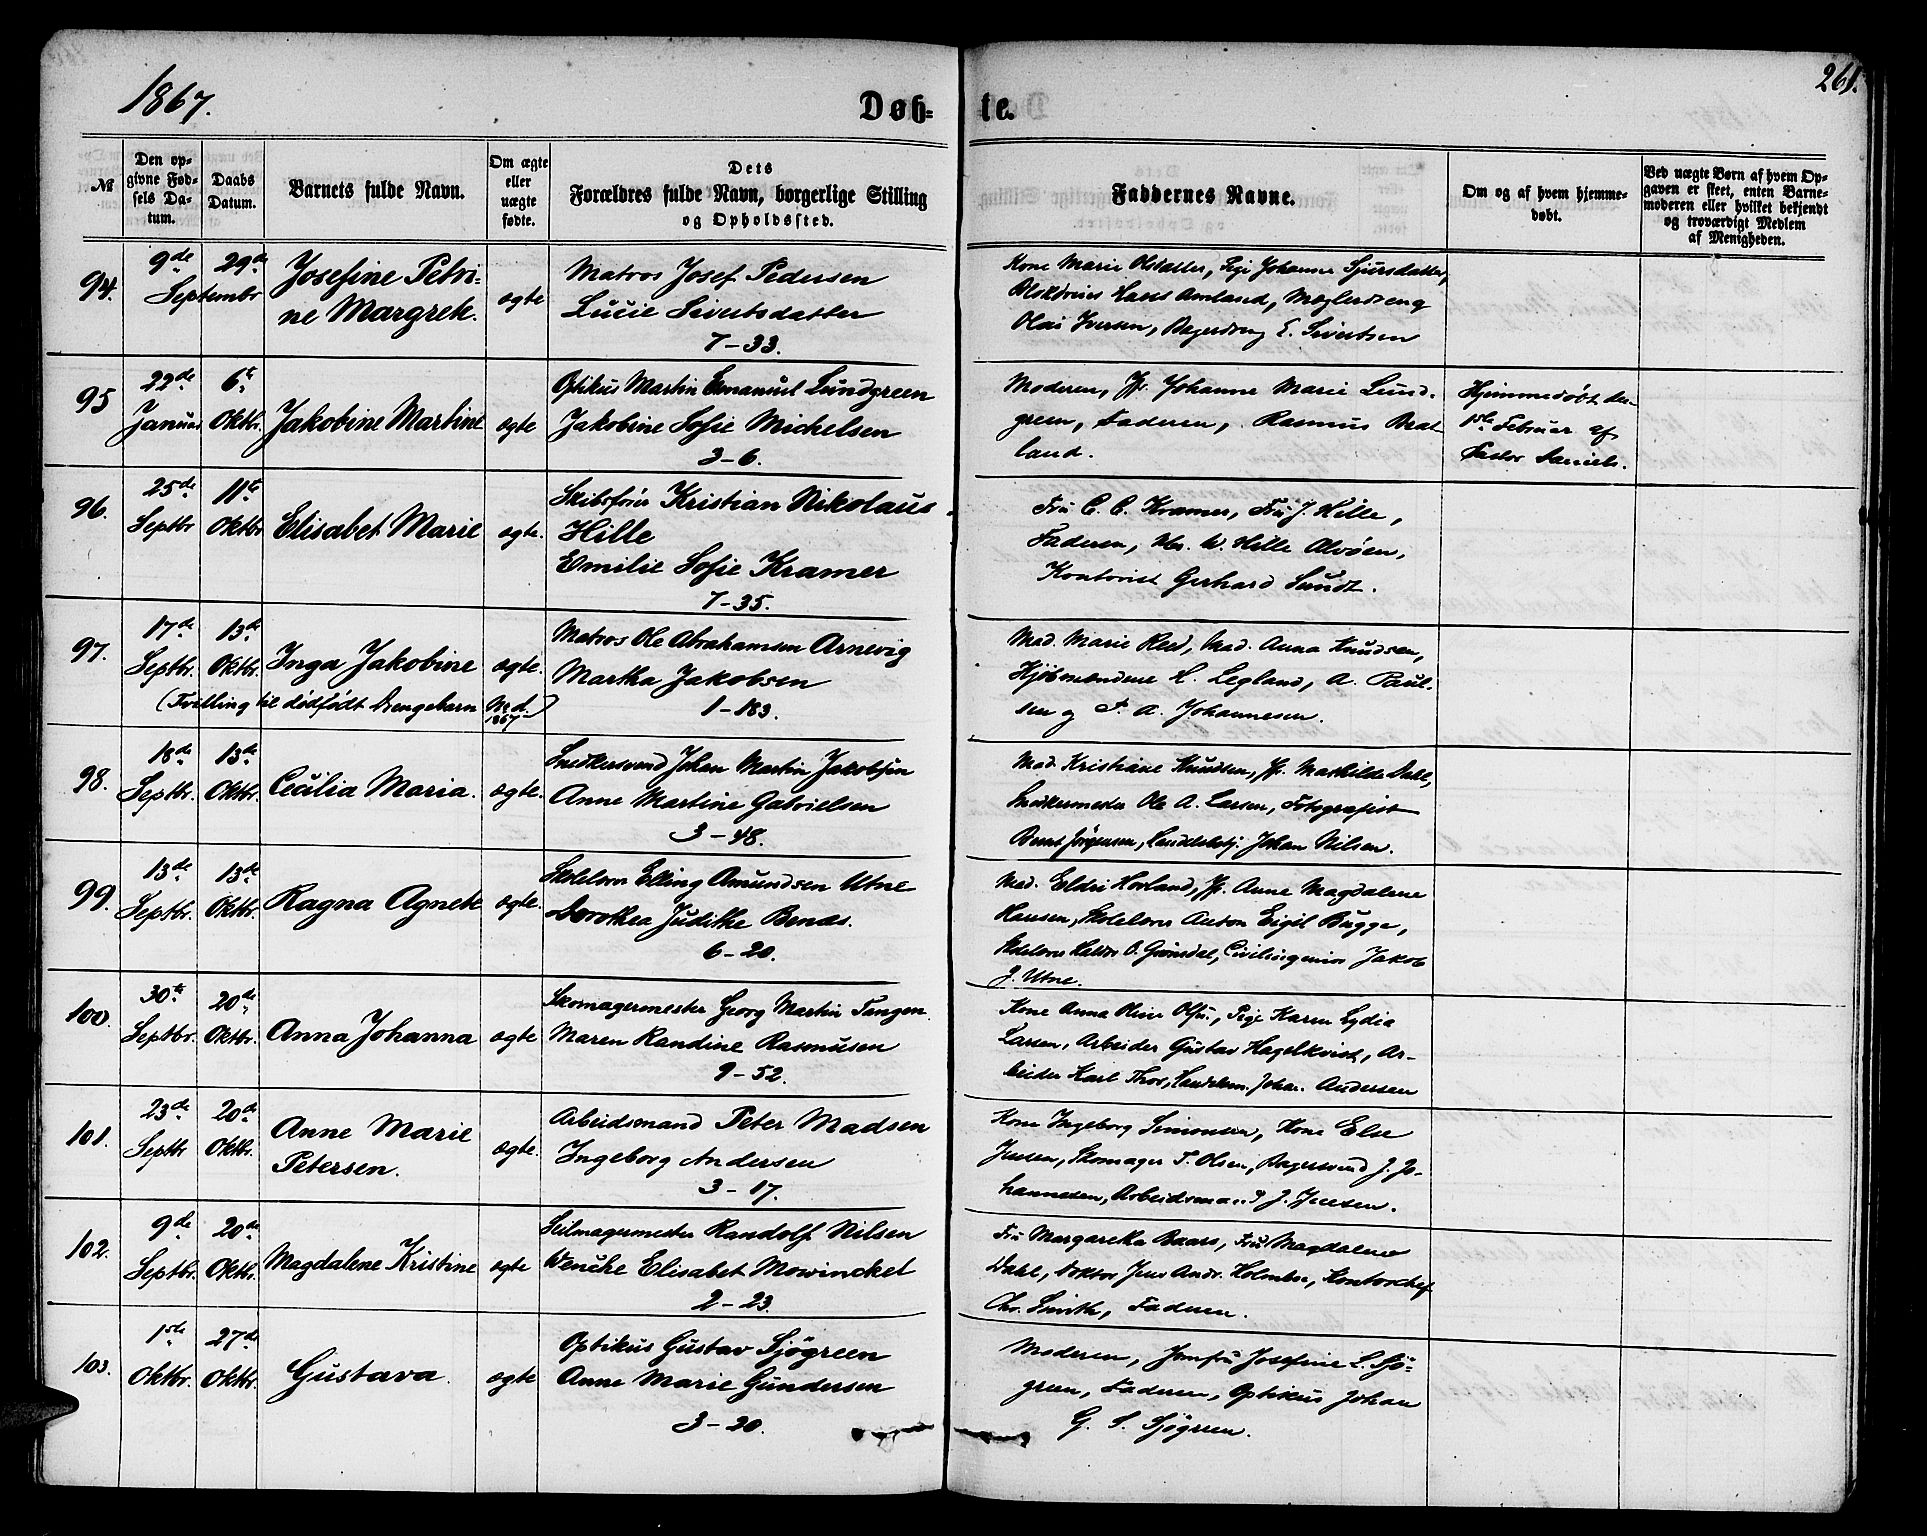 1867.
Døb-
te.
261.
№
Den op-
givne Fød-
sels Da-
tum.
Daabs
Datum.
Barnets fulde Navn.
Om ægte
eller
uægte
fødte.
Dets
Forældres fulde Navn, borgerlige Stilling
og Opholdssted.
Faddernes Navne.
Om og af hvem hjemme-
døbt.
Ved uægte Børn af hvem Op-
gaven er skeet, enten Barne-
moderen eller hvilket bekjendt
og troværdigt Medlem
af Menigheden.
94.
9de 29de
Septembr
Josefine Petri-
ne Margrete.
ægte
Matros Josef Pedersen
Lucie Sivertsdatter
7-33.
Kone Marie Olsdatter, Pige Johanne Sjursdatter,
Amland, Mæglerdreng
Olai Iversen, Bagerdreng E. Sivertsen
95
22de 6te
Januar Oktbr.
Jakobine Martine
ægte
Optikus Martin Emanuel Lundgreen
Jakobine Sofie Michelsen
3-6.
Moderen, Jfr. Johanne Marie Lund-
green, Faderen, Rasmus Brat-
land.
Hjemmedøbt den
1ste Februar af
Pastor Daniels.
96.
25de 11te
Septbr Oktbr
Elisabet Marie
ægte.
Skibsfører Kristian Nikolaus
Hille
Emilie Sofie Kramer
7-35.
Fru C. C. Kramer, Fru J. Hille,
Faderen, Hr. W. Hille Alvøen,
Kontorist Gerhard Sundt.
97.
17de 13de
Septbr. Oktbr.
Inga Jakobine
ægte.
(Tvilling til dødfødt Drengebarn No d. 1867)
Matros Ole Abrahamsen Arnevig
Martha Jakobsen
1-183.
Mad. Marie Reed, Mad. Anna Knudsen,
Kjøbmændene H. Legland, A. Paul-
sen og P. A. Johannesen.
98.
18de 13de
Septbr. Oktbr.
Cecilia Maria.
ægte.
Snedkersvend Johan Martin Jakobsen
Anne Martine Gabrielsen
3-48.
Mad. Kristiane Knudsen, Jfr. Mathilde Dahl,
Snedkermester Ole A. Larsen, Fotografist
Bernt Jørgensen, Handelsbetj. Johan Nilsen.
99.
13de 13de
Septbr. Oktbr.
Ragna Agnete
ægte.
Skolelærer Elling Amundsen Utne
Dorothea Judithe Benas.
6-20.
Mad. Eldri Hovland, Jfr. Anne Magdalene
Hansen, Skolelærer Anton Eigil Bugge,
Skolelærer Haldor O. Grønsdal, Civilingeniør Jakob
J. Utne.
100.
30te 20de
Septbr. Oktbr.
Anna Johanna
ægte
Skomagermester Georg Martin Tangen
Maren Randine Rasmusen
9-52.
Kone Anna Oline Olsen, Pige Karen Lydia
Larsen, Arbeider Gustav Hagelkvist, Ar-
beider Karl Thor, Johan Andersen
101.
23de 20de
Septbr Oktbr.
Anne Marie
Petersen.
ægte.
Arbeidsmand Peter Madsen
Ingeborg Andersen
3-17.
Kone Ingeborg Simonsen, Kone Else
Jensen, Skomager P. Olsen, Bagersvend J. Jo-
hannesen, Arbeidsmand J. Jensen.
102.
9de 20de
Septbr. Oktbr.
Magdalene Kristine
ægte
Seilmagermester Randolf Nilsen
Wenche Elisabet Mowinckel
2-23.
Fru Margaretha Baars, Fru Magdalene
Dahl, Doktor Jens Andr. Holmboe, Kontorchef
Chr. Smith, Faderen.
103.
1ste 27de
Oktbr. Oktbr.
Gustava.
ægte
Optikus Gustav Sjøgreen
Anne Marie Gundersen
3-20.
Moderen, Jomfru Josefine L. Sjø-
green, Faderen, Optikus Johan
G. S. Sjøgreen.